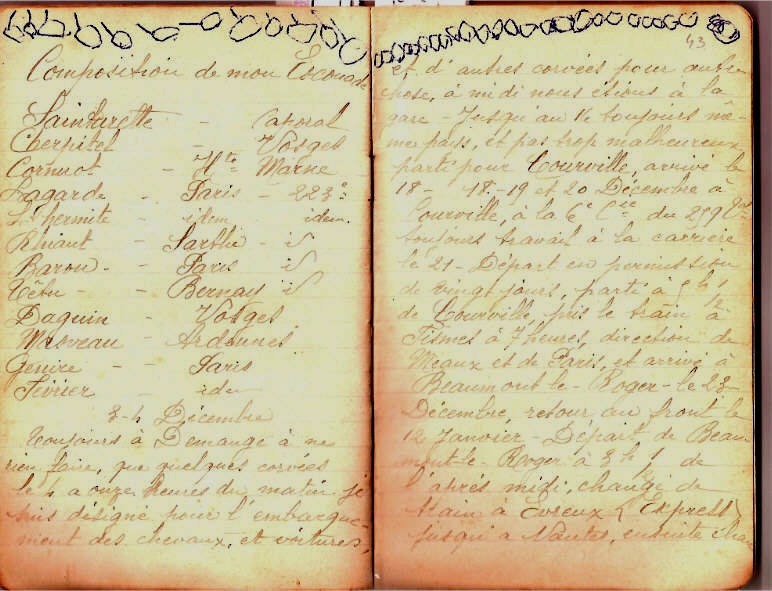 Composition de mon Escouade
Sainturette - Caporal
Cherpitel - Vosges
Cornuot - Hte Marne
Lagarde - Paris - 223e
L'hermite - idem idem.
Rhiant - Sarthe - id
Baron - - Paris id
Tébu - - Bernay id
Daguin - Vosges
Masveau - Ardennes
Genire - - Paris
Février - idem
3-4 Décembre
Toujours à Demange à ne
rien faire, que quelques corvées
le 4 a onze heures du matin je
suis désigné pour l'embarque-
ment des chevaux, et voitures,
43
et d'autres corvées pour autre
chose, à midi nous étions à la
gare - Jusqu'au 16 toujours mê-
me pays, et pas trop malheureux
parti pour Courville, arrivé le
18 - 18 - 19 et 20 Décembre à
Courville, à la 6e Cie du 259
toujours travail à la carrière
le 21 - Départ en permission
de vingt jours, parti à 5 h 1/2
de Courville, pris le train à
Fismes à 7 heures, direction de
Meaux et de Paris, et arrivé à
Beaumont-le-Roger - le 23 -
Décembre, retour au front le
12 Janvier - Départ, de Beau
mont-le-Roger à 3 h 1 de
l'après midi, change de
train à Evreux (Express)
jusqu'a Mantes, ensuite chan